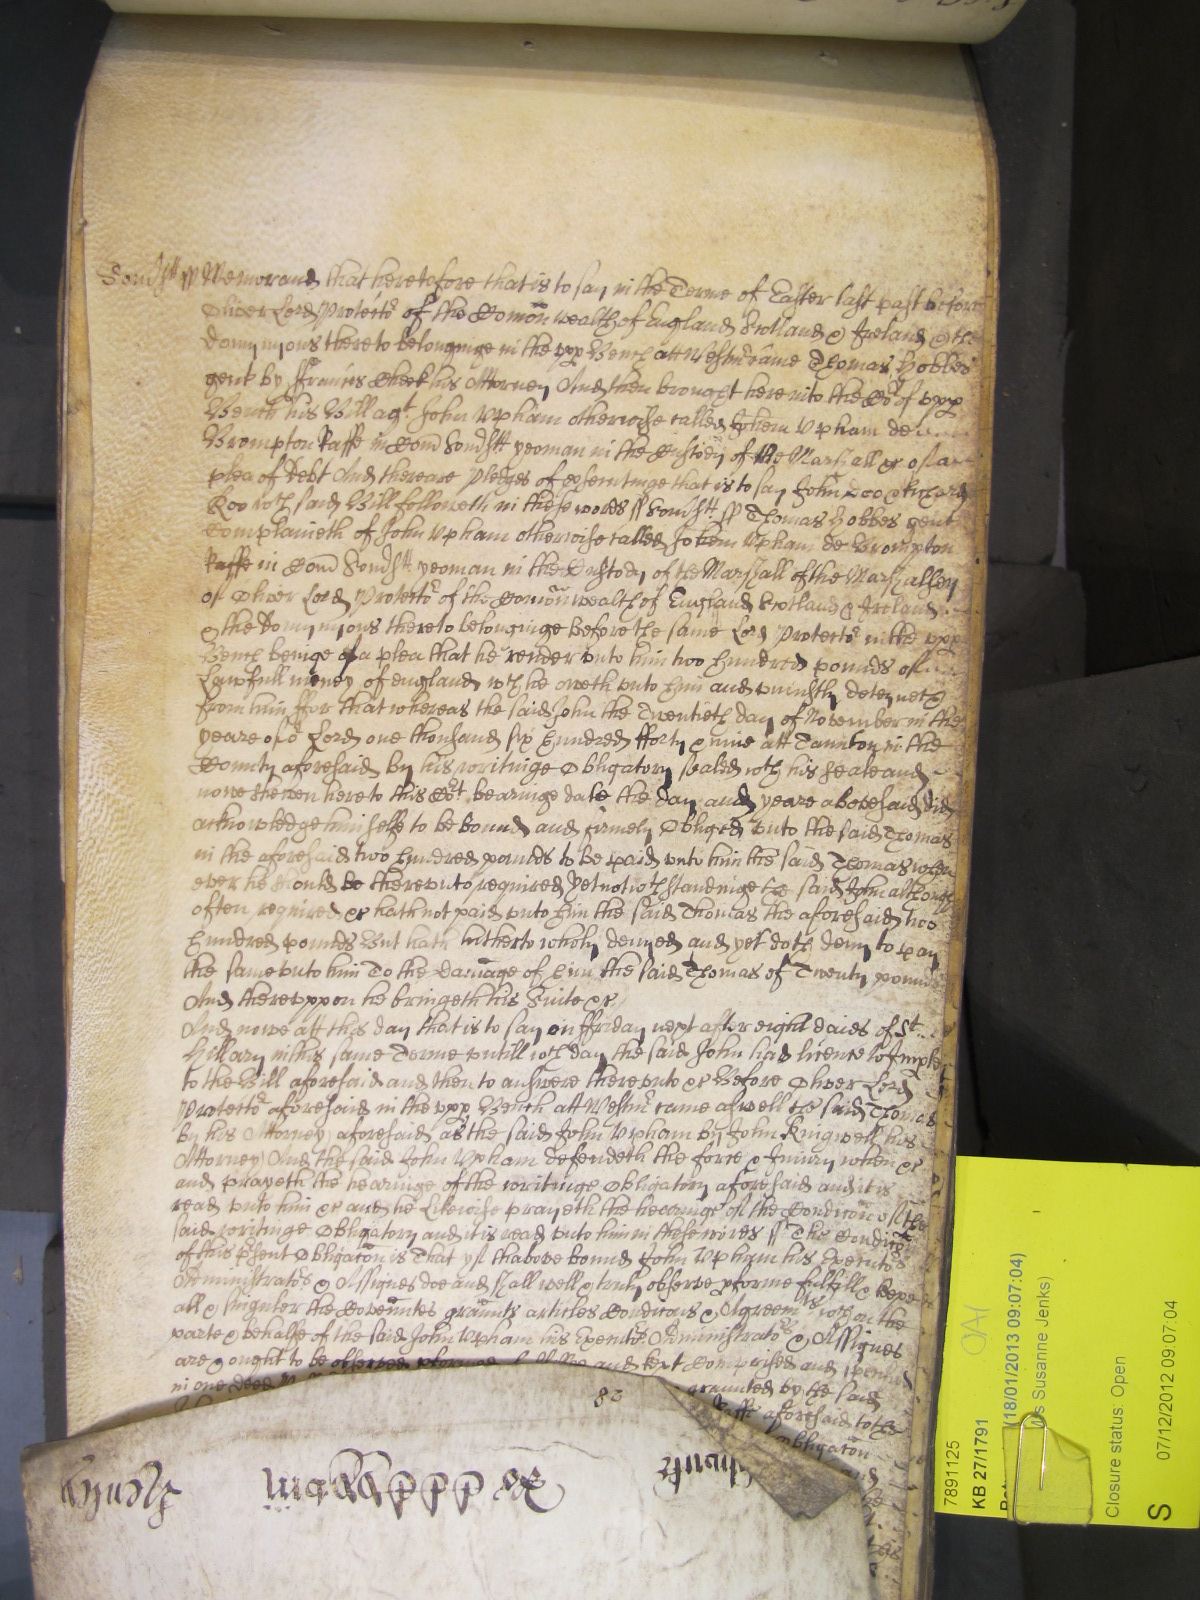 Somsett ss Memorand that heretofore that is to say in the Terme of Easter last past before
Oliver Lord Protector of the Comon wealth of England Scotland & Ireland & the
domynyons thereto belonginge in the upp Bench att Westmr came Thomas Hobbes
gent by ffrancis Cheek his Attorney And then brought here into the Cort of upp
Bench his Bill agt John Upham otherwise called Johem Upham de
Brompton Raffe in Com Somsett yeoman in the Custody of the Marshall &c of a
plea of debt And there are pledges of prosecutinge that is to say John Doo & Richard
Roo wch said Bill followeth in these words ss Somsett ss Thomas Hobbes gent
Complaineth of John Upham otherwise called Johem Upham de Brompton
Raffe in Com Somsett yeoman in the Custody of the Marshall of the Marshalsey
of Oliver Lord Protector of the Comon wealth of England Scotland & Ireland
& the domynyons thereto belonginge Before the same Lord Protector in the upp
Bench beinge of a plea that he render unto him two hundred pounds of
Lawfull money of england wch he oweth unto him and uniustly deteyneth
from him ffor that whereas the said John the Twentieth day of November in the
yeare of or Lord one thousand six hundred fforty & nine att Taunton in the
County aforesaid by his writinge Obligatory sealed wth his seale and
nowe shewen here to this Cort bearinge date the day and yeare abovesaid did
acknowledge himselfe to be bound and firmely Obliged unto the said Thomas
in the aforesaid two hundred pounds to be paid unto him the said Thomas when
ever he should be thereunto required Yet notwthstandinge the said John although
often required &c hath not paid unto him the said Thomas the aforesaid two
hundred pounds But hath hitherto wholy denyed and yet doth deny to pay
the same unto him To the damage of him the said Thomas of Twenty pounds
And thereuppon he bringeth his Suite &c
And nowe att this day that is to say on ffriday next after eight daies of St
Hillary in this same Terme untill wch day the said John had licence to Imple
to the Bill aforesaid and then to answere thereunto &c Before Oliver Lord
Protector aforesaid in the upp Bench att Westmr came aswell the said Thomas
by his Attorney aforesaid as the said John Upham by John Ringwell his
Attorney And the said John Upham defendeth the force & Iniury when &c
and prayeth the hearinge of the writinge Obligatory aforesaid and it is
read unto him &c and he Likewise prayeth the hearinge of the Condicon of the
said writinge Obligatory and it is read unto him in these words ss The Condicon
of this psent Obligacon is That yf thabove bound John Upham his Executors
Administrators & Assignes doe and shall well & truly observe pforme fulfill & keepe
all & singuler the Covennts graunts articles Condicons & Agreemts wch on the
parte & behalfe of the said John Upham his Execut Administrators & Assignes
are & ought to be observed pformed and kept Comprised and
in one deed graunted by the said
Raffe aforesaid to the
obligacon
and
83
7891125
KB 27/1791
(18/01/2013 09:07:04)
s Susanne Jenks)
Closure status: Open
S 07/12/2012 09:07:04